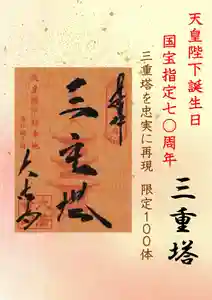 天皇陛下誕生日
国宝指定七〇周年
三重塔を忠実に再現　限定100体
三重塔
奉拝
三重塔